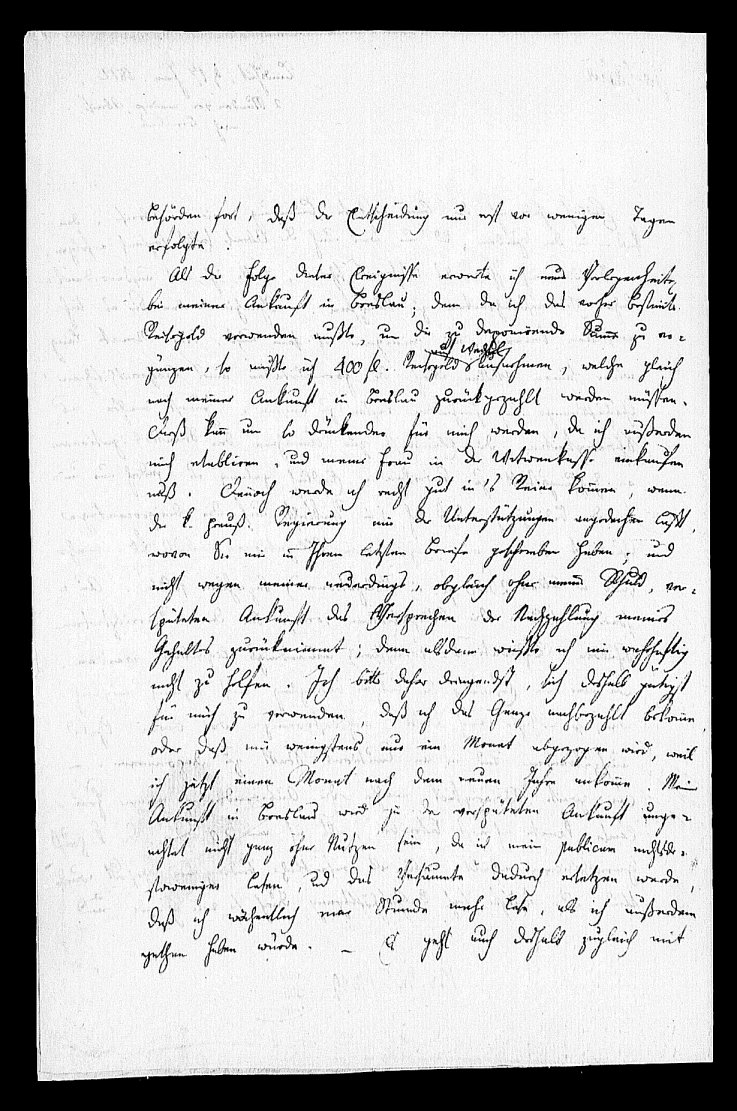 behörden fort, daß die Entscheidung nur erst vor wenigen Tagen
erfolgte.
Als die Folge dieser Ereignisse erwarte ich neue Verlegenheiten
bei meiner Ankunft in Breslau; denn da ich das vorher bestimte
Reisegeld verwenden mußte, um die zu deponirende Summe zu er-
gänzen, so mußte ich 400 fl. Reisegeld auf Wechsel aufnehmen, welche gleich
nach meiner Ankunft in Breslau zurückgezahlt werden müssen.
Dieß kann um so drückender für mich werden, da ich außerdem
mich etabliren, und meine Frau in die Witwenkasse einkaufen
muß. Dennoch werde ich recht gut in's Reine kommen, wenn
die k. preuß. Regierung mir die Unterstützungen angedeihen läßt,
wovon Sie mir in Ihrem letzten Briefe geschrieben haben, und
nicht wegen meiner neuerdings, obgleich ohne meine Schuld, ver-
späteten Ankunft das Versprechen der Nachzahlung meines
Gehalts zurücknimmt; denn alsdann wüßte ich mir wahrhaftig
nicht zu helfen. Ich bitte daher dringendst, sich deshalb gütigst
für mich zu verwenden, daß ich das Ganze nachbezahlt bekomme,
oder daß mir wenigstens nur ein Monat abgezogen wird, weil
ich jetzt einen Monat nach dem neuen Jahre ankomme. Meine
Ankunft in Breslau wird zu der verspäteten Ankunft unge-
achtet nicht ganz ohne Nutzen sein, da ich mein publicum nichtsde-
stoweniger lesen, und das Versäumte dadurch ersetzen werde,
daß ich wöchentlich mehr Stunde mehr lese, als ich außerdem
gethan haben würde. – Es geht auch deshalb zugleich mit